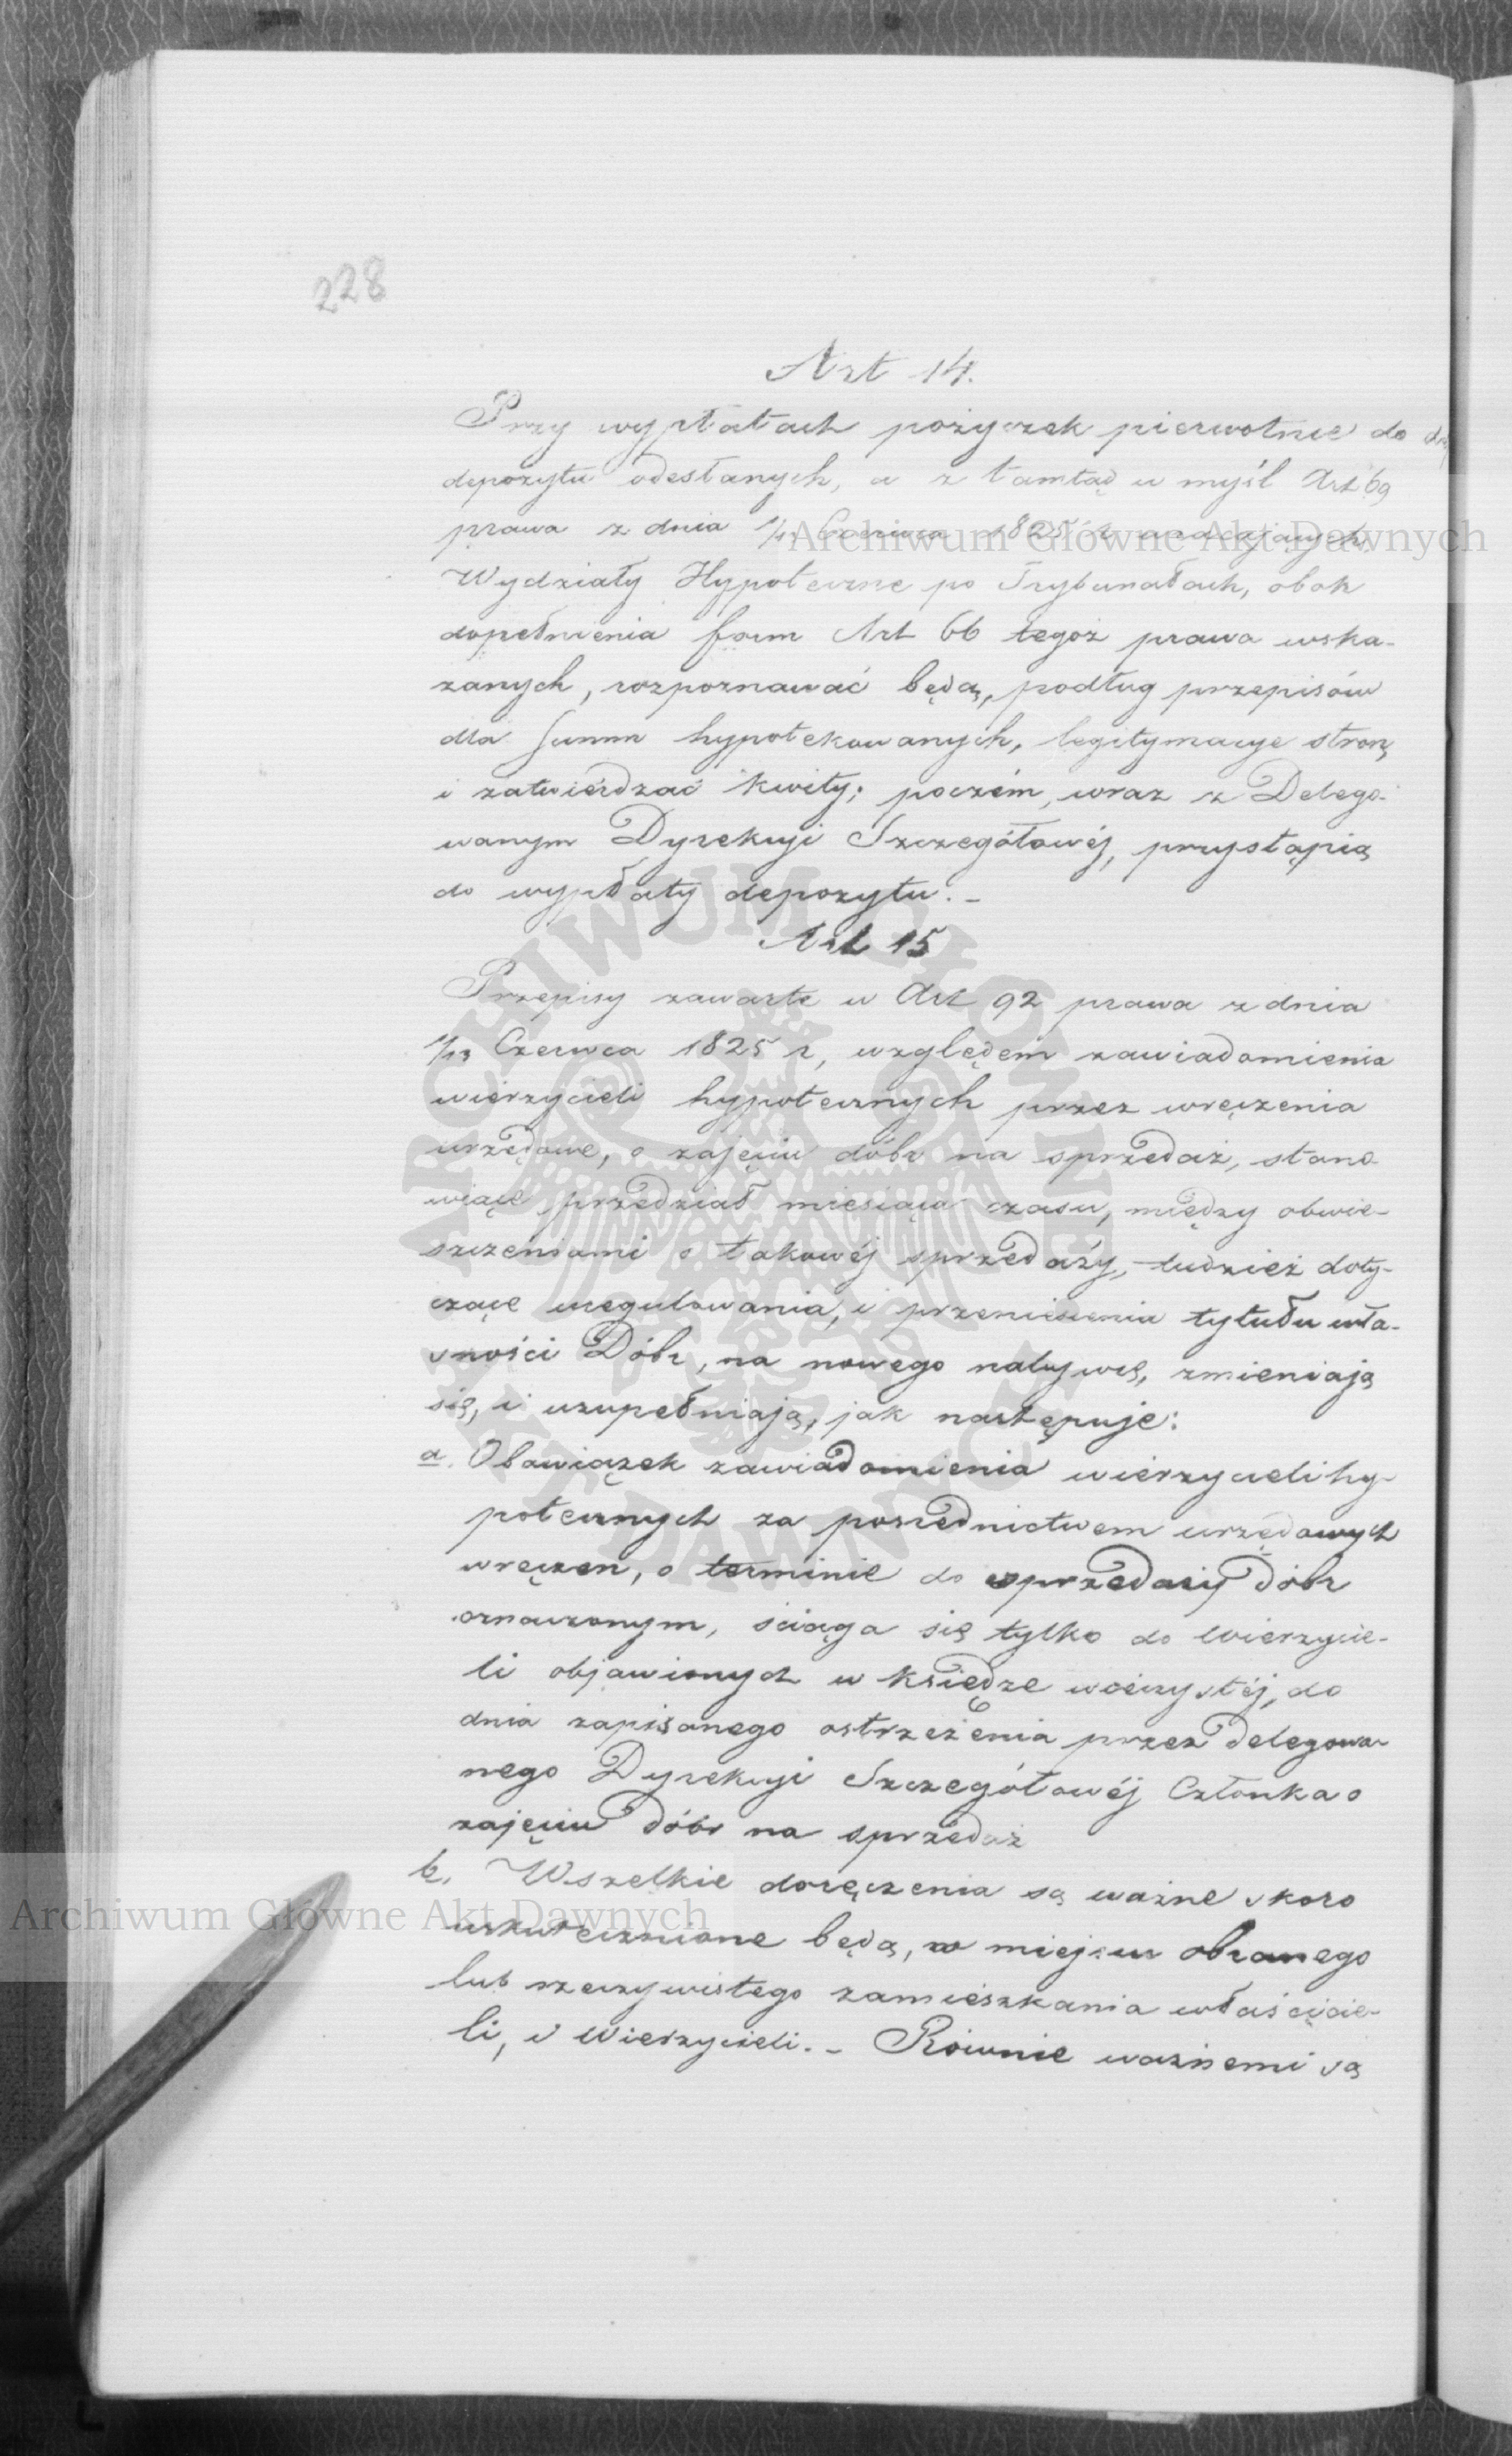 228
Art 14.
Przy wypłatach pożyczek pierwotnie do
depozytu odesłanych, a z tamtąd w myśl Art 69
prawa z dnia 1/13 Czerwca 1825 r wracających
Wydziały Hypoteczne po Trybunałach, obok
dopełnienia form Art 66 tegoż prawa wska-
zanych, rozpoznawać będą, podług przepisów
dla summ hypotekowanych, legitymacye stron,
i zatwierdzać kwity; poczém, wraz z Delego-
wanym Dyrekcyi Szczegółowéj, przystąpią
do wypłaty depozytu. -
Art 15
Przepisy zawarte w Art 92 prawa z dnia
1/13 Czerwca 1825 r, względem zawiadomienia
wierzycieli hypotecznych przez wręczenia
urzędowe, o zajęciu dóbr na sprzedaż, stano-
wiące przedział miesiąca czasu, między obwie-
szczeniami o takowéj sprzedaży, tudzież doty-
czące uregulowania, i przeniesienia tytułu wła-
sności Dóbr, na nowego nabywcę, zmieniają
się, i uzupełniają, jak następuje:
a. Obowiązek zawiadomienia wierzycieli hy-
potecznych za pośrednictwem urzędowych
wręczen, o terminie do sprzedaży dóbr
oznaczonym, ściąga się tylko do Wierzycie-
li objawionych w księdze wieczystéj, do
dnia zapisanego ostrzeżenia przez delegowa-
nego Dyrekcyi Szczegółowéj Członka o
zajęciu dóbr na sprzedaż
b. Wszelkie doręczenia są ważne skoro
uskutecznione będą, w miejscu obranego
lub rzeczywistego zamieszkania właścicie-
li, i Wierzycieli. - Równie ważnemi są
Archiwum Główne Akt Dawnych
Archiwum Główne Akt Dawnych
ARCHIWUM GŁÓWNE AKT DAWNYCH